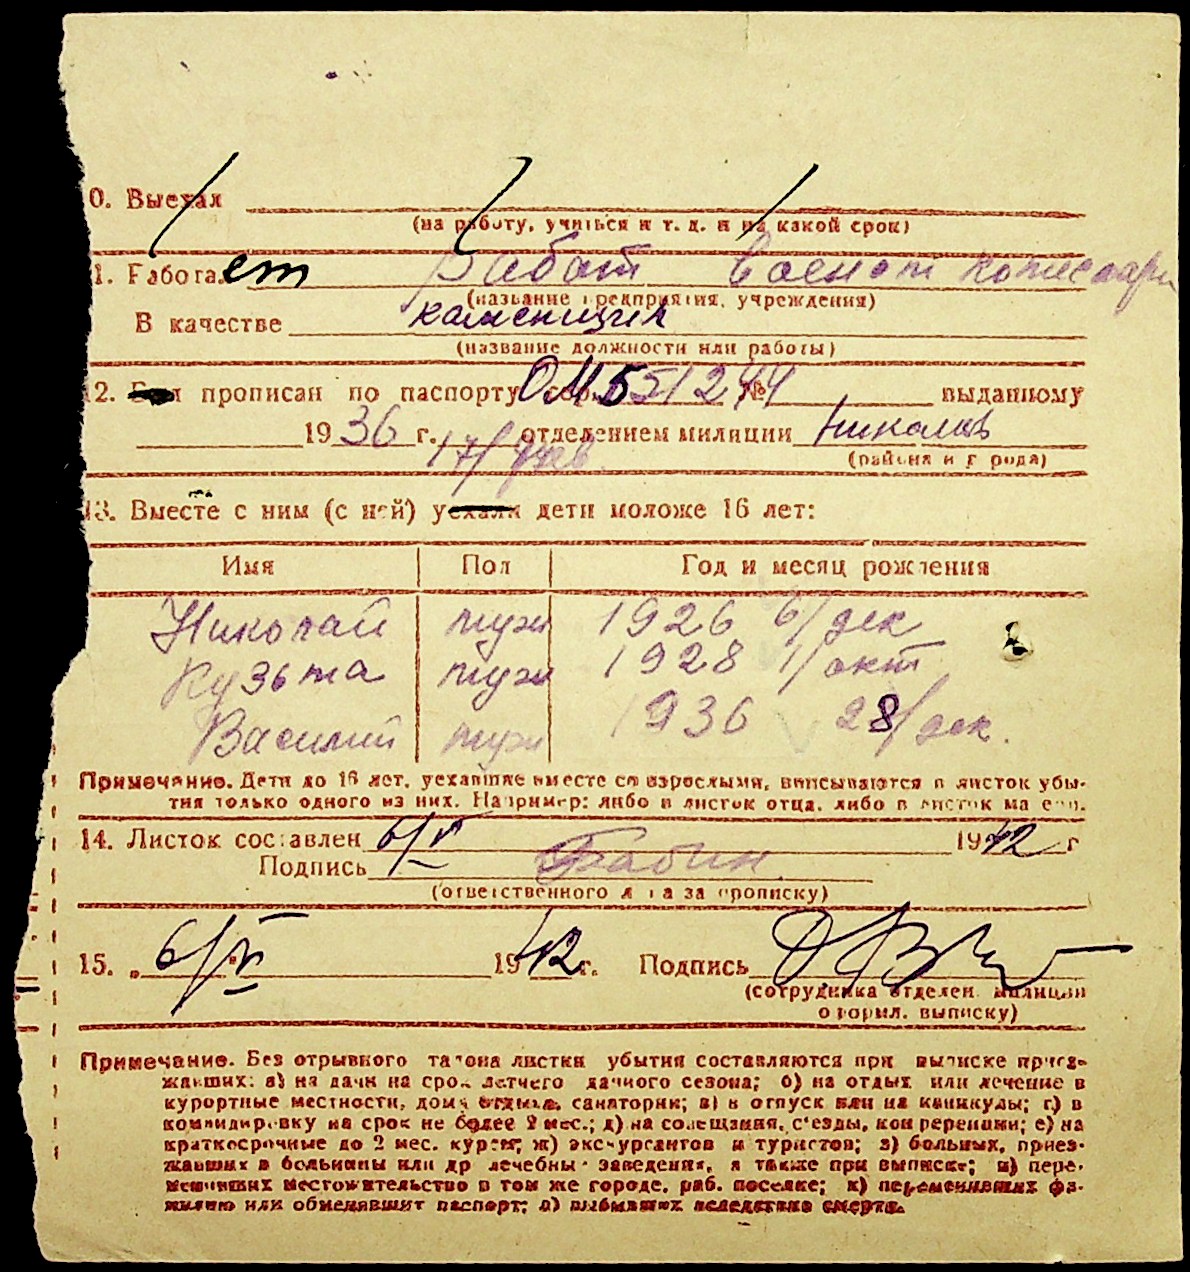 0. Выехал
(на работу, учиться и т. д. и на какой срок)
1. Работает Работ военот комиссари
(название предприятия, учреждения)
В качестве каменщик
(название должности или работы)
12. прописан по паспорту сер. ОМБ 551244 № выданному
1936 г. 17/ отделением милиции Николаев
(района и города)
13. Вместе с ним (с ней) дети моложе 16 лет:
Имя Пол Год и месяц рождения
Николай муж 1926 6/дек
Кузьма муж 1928 1/окт
Василий муж 1936 28/дек.
Примечание. Дети до 16 лет, уехавшие вместе со взрослыми, вписываются в листок убы-
тия только одного из них. Например: либо в листок отца, либо в листок матери.
14. Листок составлен 6/V 1942 г
Подпись Бабин
(ответственного лица за прописку)
15. „ 6/V 1942 г. Подпись
(сотрудника отделен. милиции
оформл. выписку)
Примечание. Без отрывного талона листки убытия составляются при выписке приез-
жавших: а) на дачи на срок летнего дачного сезона; б) на отдых или лечение в
курортные местности, дома отдыха, санатории; в) в отпуск или на каникулы; г) в
командировку на срок не более 2 мес.; д) на совещания, с'езды, конференции; е) на
краткосрочные до 2 мес. курсы; ж) экскурсантов и туристов; з) больных, приез-
жавших в больницы или др лечебные заведения, а также при выписке; и) пере-
менивших местожительство в том же городе, раб. поселке; к) переменивших фа-
милию или обменявших паспорт; л) выбывших вследствие смерти.